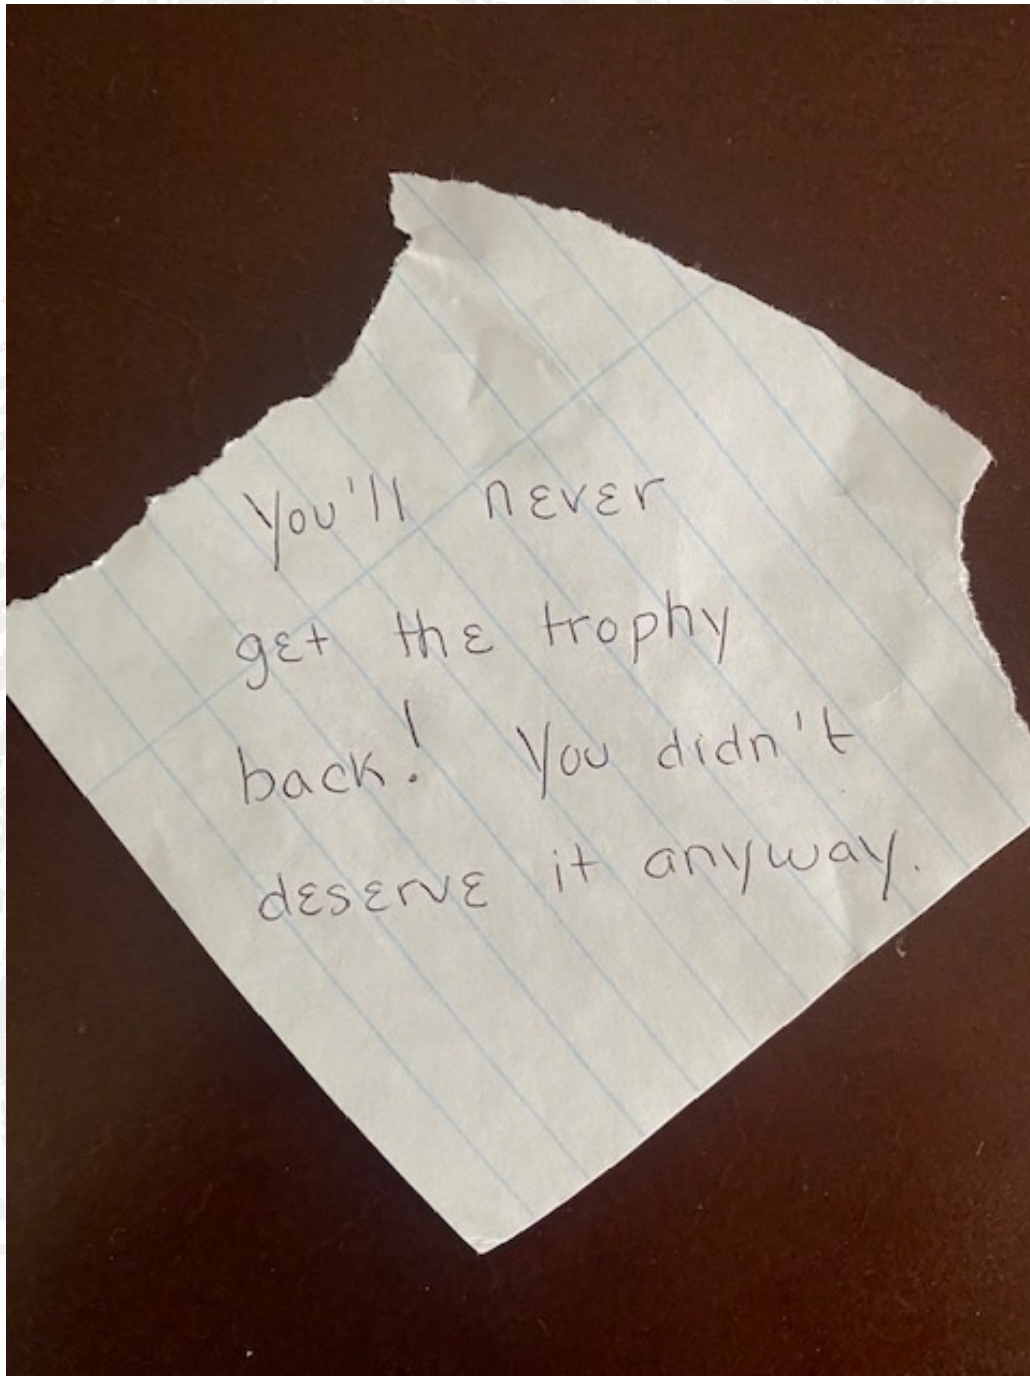 You'll never
get the trophy
back! You didn't
deserve it anyway.